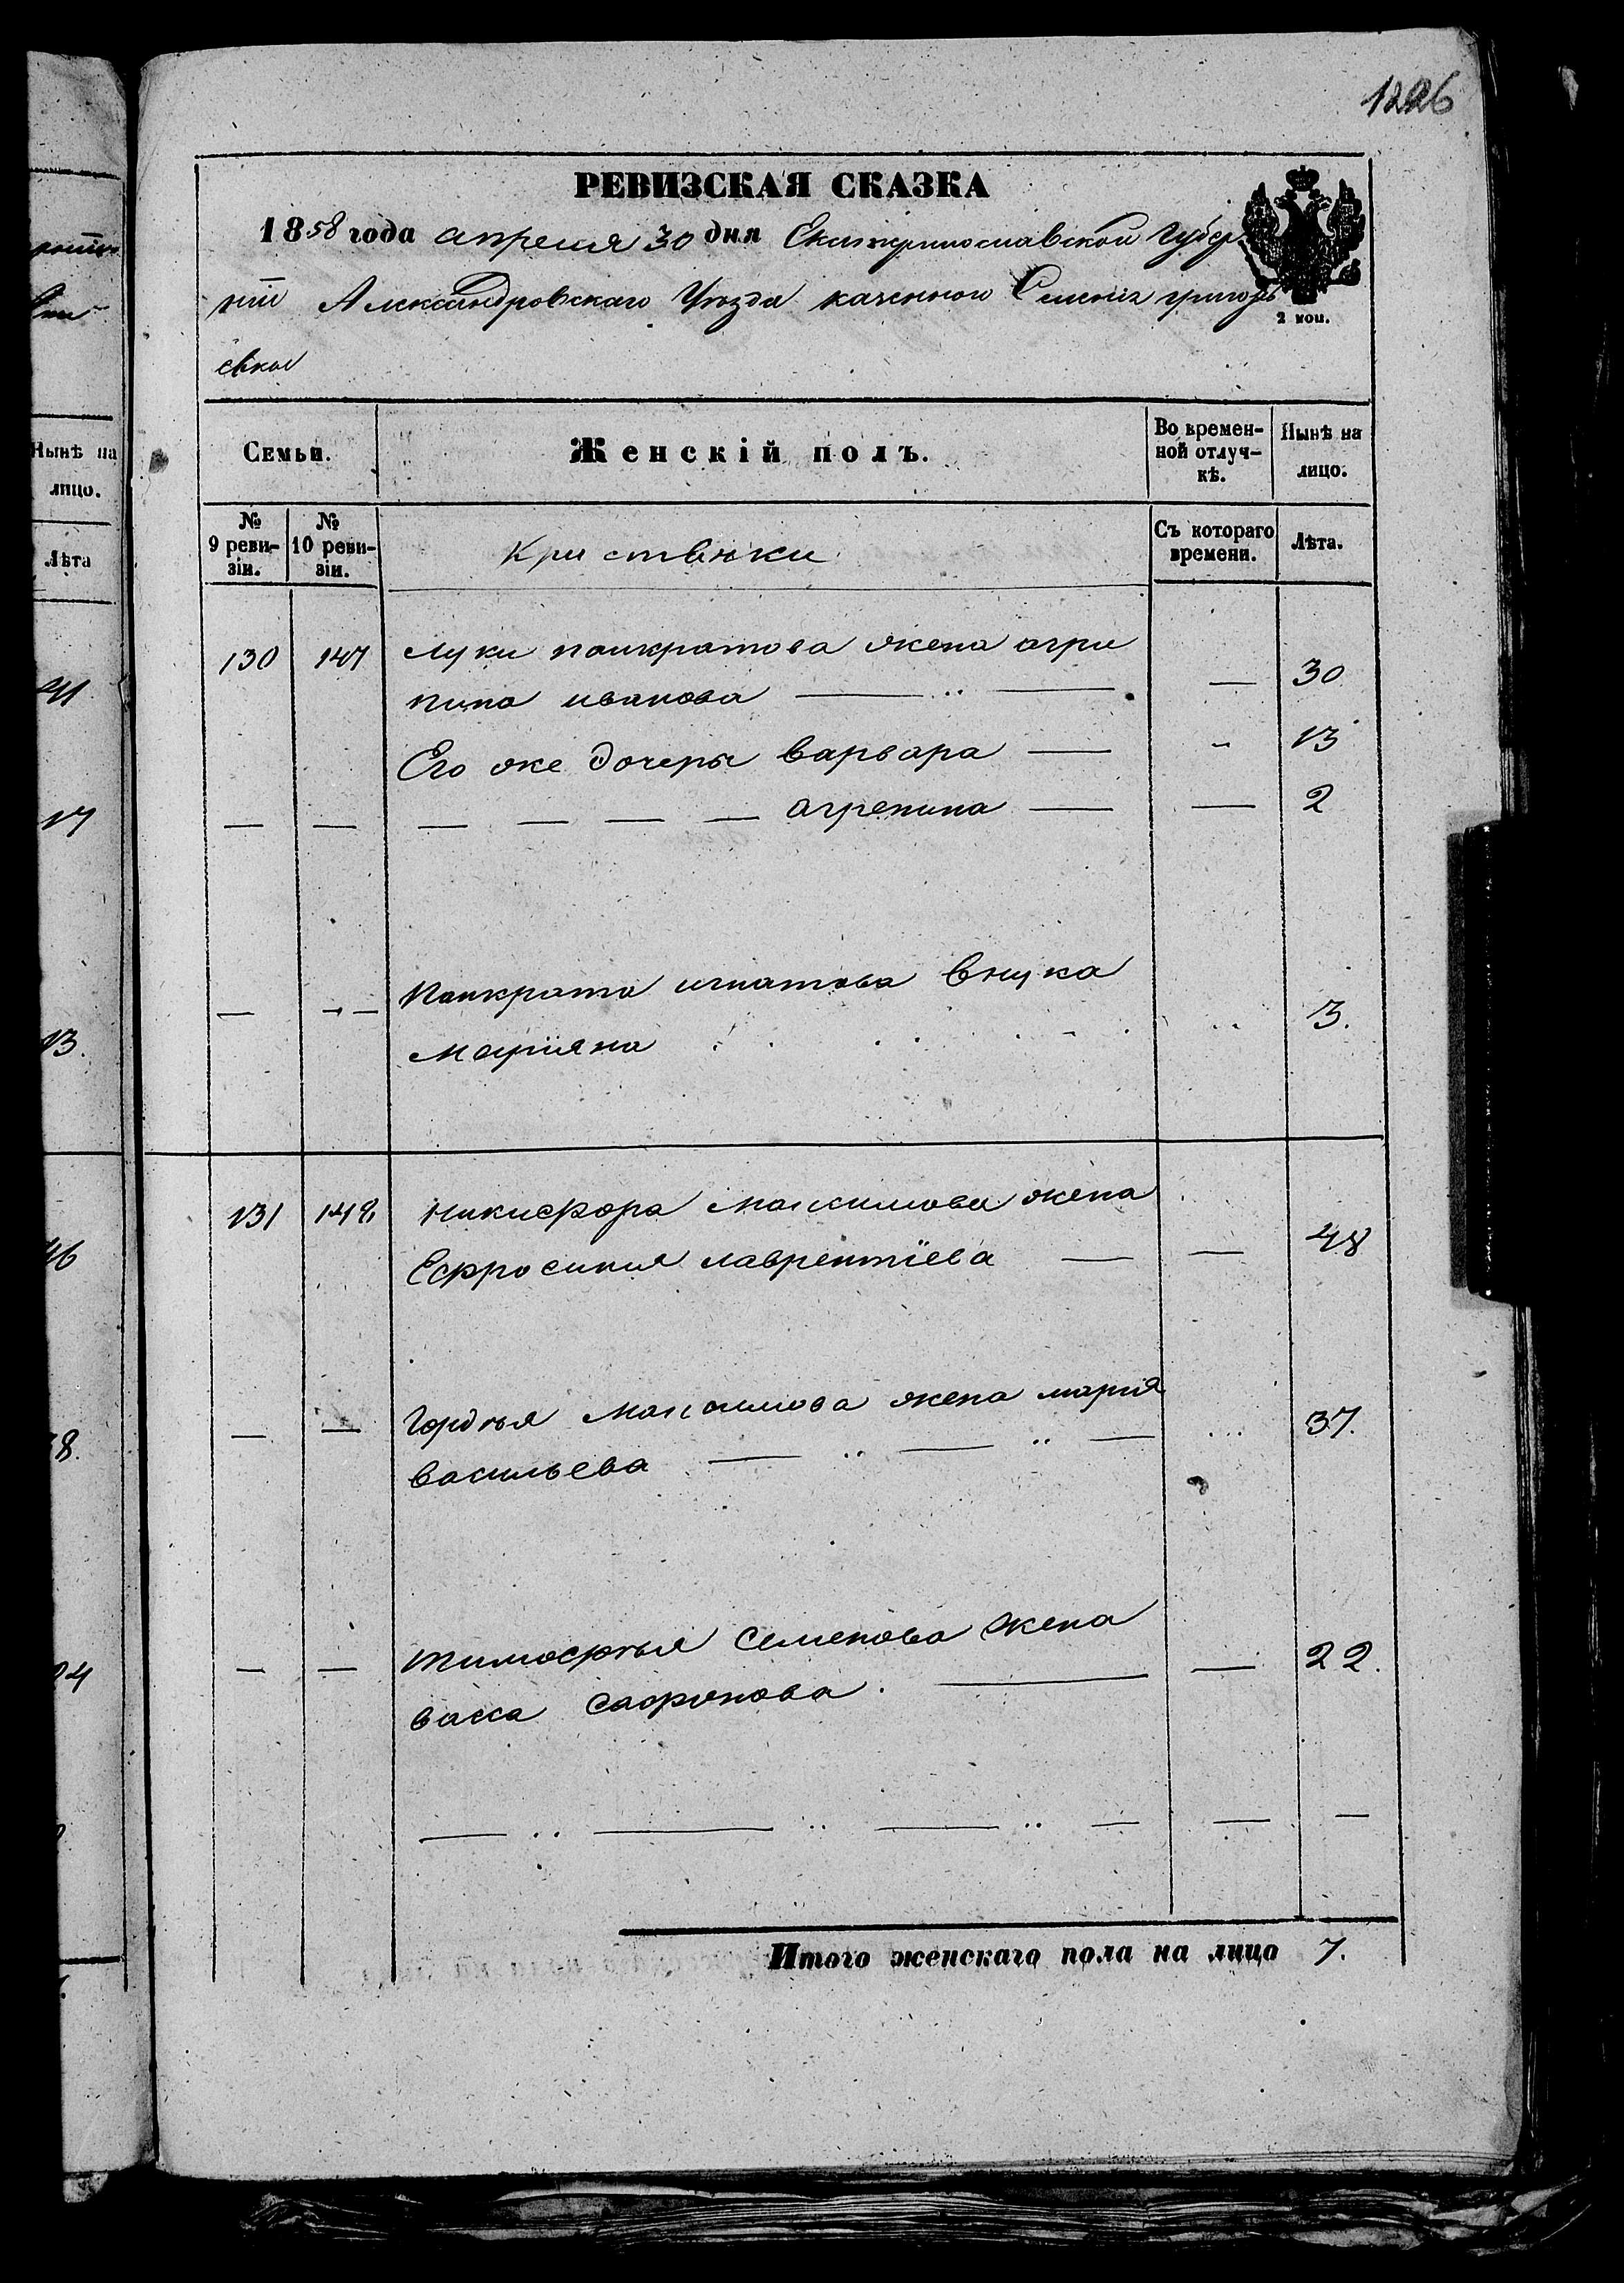 1226
РЕВИЗСКАЯ СКАЗКА
1858 года апреля 30 дня Екатеринославской Губер
нии Александровскаго Уезда казенной Селения григорь
евки
2 коп.
Семьи.
Женскій полъ.
Во времен-
ной отлуч-
кѣ.
Нынѣ на
лицо.
№
9 реви-
зіи.
№
10 реви-
зіи.
Кристянки
Съ котораго
времени.
Лѣта.
130 147 Луки панкратова жена агри
пина иванова — 30
Его же дочеры варвара — 13
— — — — — — агрепина — — 2
— — Панкрата игнатова внука
Марияна 3.
131 148 Никифора Максимова жена
Ефросиния лаврентїева — — 48
— — Гордѣя Максимова жена мария
васильева — 37.
— — тимофѣя Семенова жена
васса Сафронова. — — 22.
Итого женскаго пола на лицо 7.
Нынѣ на
лицо.
Лѣта
41
17
13.
46
8.
24